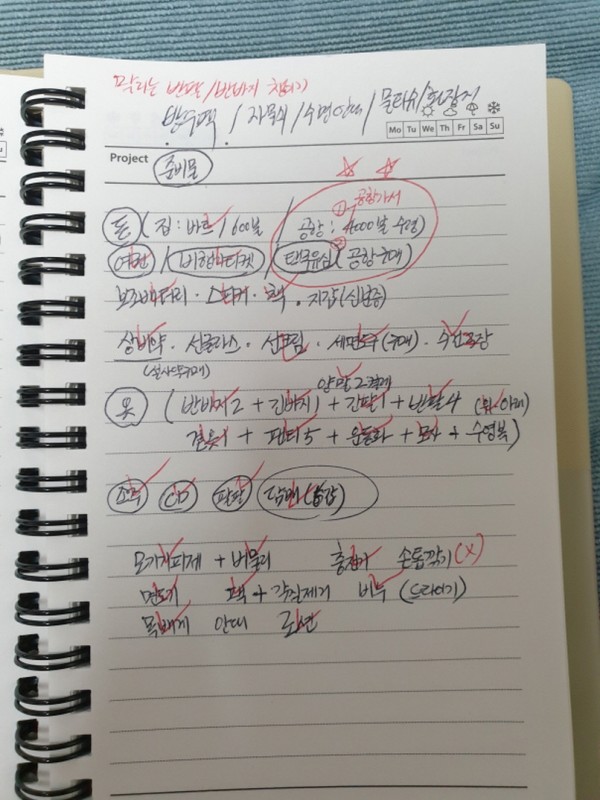 막디는 반팔/반바지 챙기기
반누팩 / 자물쇠 / 수면안대 / 물티슈/화장지
Mo Tu We Th Fr Sa Su
Project 준비물
① 공항가서
돈 ( 집 : 바트 / 600불 / 공항 : 4000불 수령)
여권 / 비행기티켓 / ② 태국유심 (공항구매)
보조배터리 · 스티커 · 책 · 지갑(신분증)
상비약 · 선글라스 · 선크림 · 세면도구 (구매) · 수건 2장
(설사약구매)
양말 2켤레
옷 ( 반바지 2 + 긴바지 1 + 긴팔 1 + 반팔 4 (위·아래)
겉옷 1 + 팬티 5 + 운동화 + 모자 + 수영복
담배(습갑)
모기기피제 + 버물리 충전기 손톱깎기(X)
면도기 팩 + 각질제거 비누 (드라이기)
목베개 안대 라면